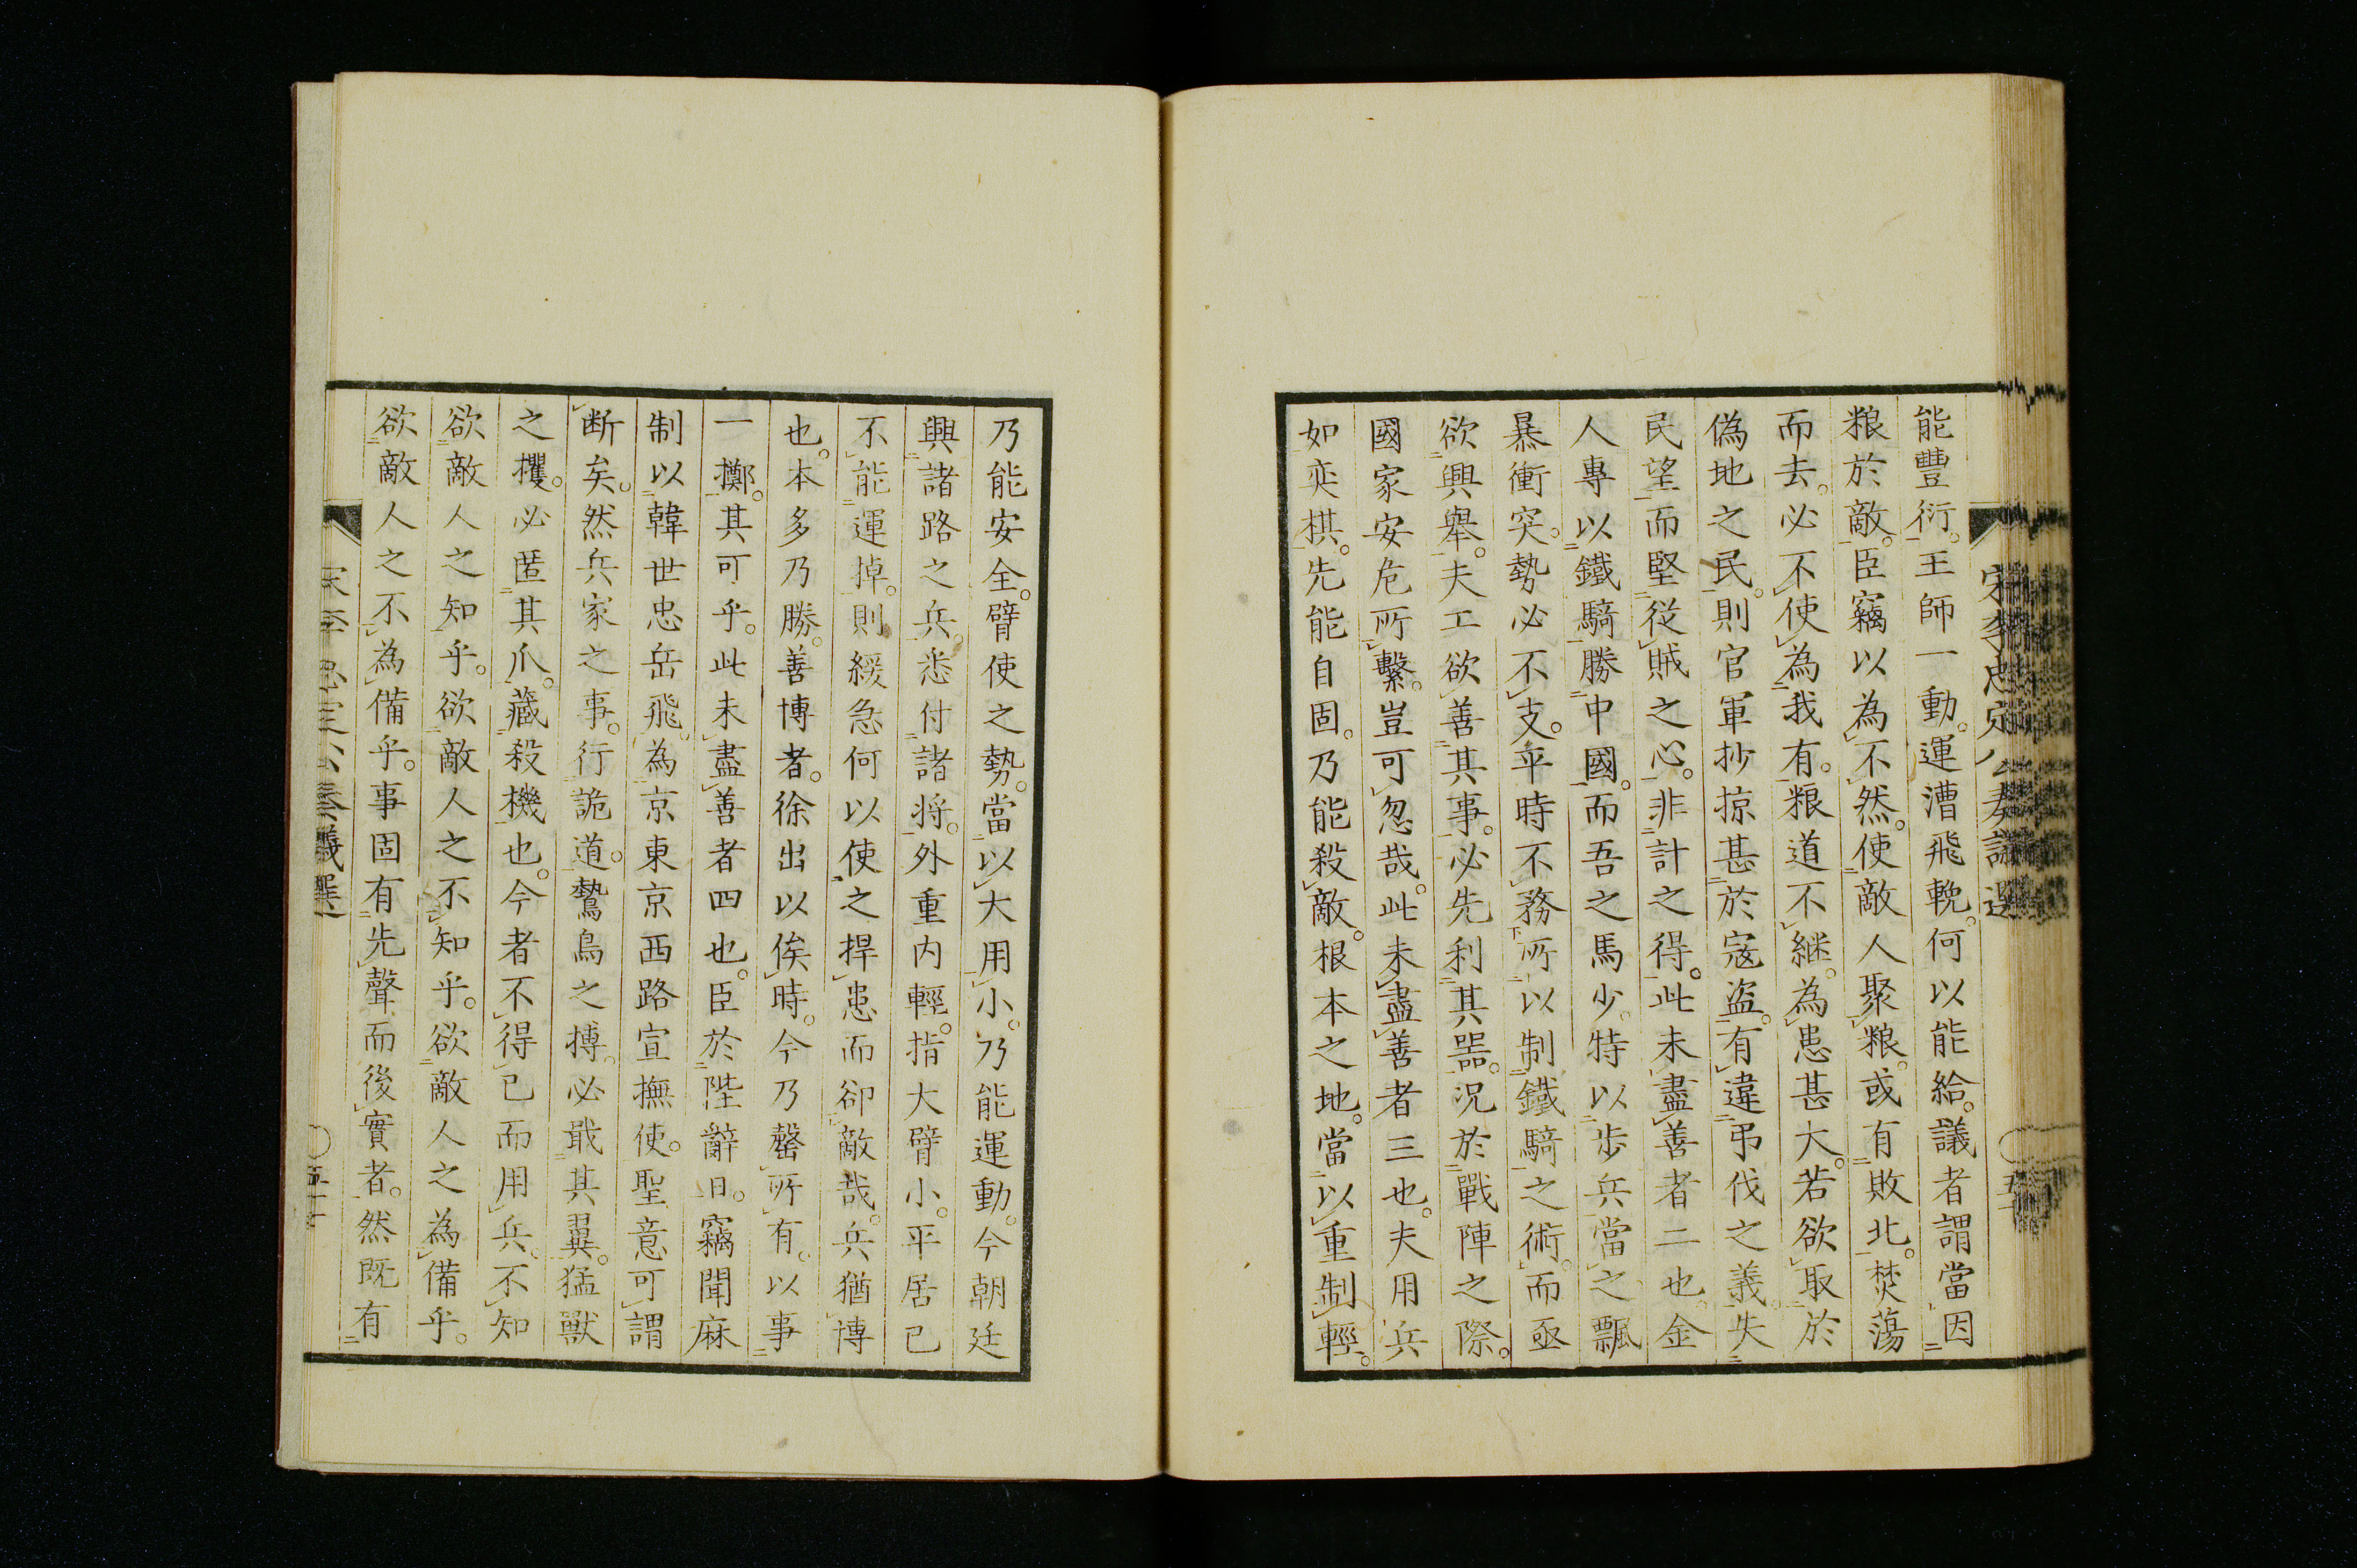 能豐衍。王師一動。運漕飛輓。何以能給。議者謂當因
粮於敵。臣竊以為不然。使敵人聚粮。或有敗北。焚蕩
而去。必不使為我有。粮道不継。為患甚大。若欲取於
偽地之民。則官軍抄掠甚於寇盗。有違弔伐之義。失
民望而堅従賊之心。非計之得。此未盡善者二也。金
人專以鐵騎勝中國。而吾之馬少。特以歩兵當之飄
暴衝突。勢必不支。平時不務所以制鐵騎之術。而亟
欲興舉。夫工欲善其事。必先利其噐。況於戰陣之際。
國家安危所繫。豈可忽哉。此未盡善者三也。夫用兵
如奕棋。先能自固。乃能殺敵。根本之地。當以重制輕。
乃能安全。臂使之勢。當以大用小。乃能運動。今朝廷
興諸路之兵。悉付諸将。外重内輕。指大臂小。平居已
不能運掉。則緩急何以使之捍患而卻敵哉。兵猶博
也。本多乃勝。善博者。徐出以俟時。今乃罄所有。以事
一擲。其可乎。此未盡善者四也。臣於陛辭日。竊聞麻
制以韓世忠岳飛。為京東京西路宣撫使。聖意可謂
断矣。然兵家之事。行詭道。鷙鳥之搏。必戢其翼。猛獸
之攫。必匿其爪。藏殺機也。今者不得已而用兵。不知
欲敵人之知乎。欲敵人之不知乎。欲敵人之為備乎。
欲敵人之不為備乎。事固有先聲而後實者。然既有